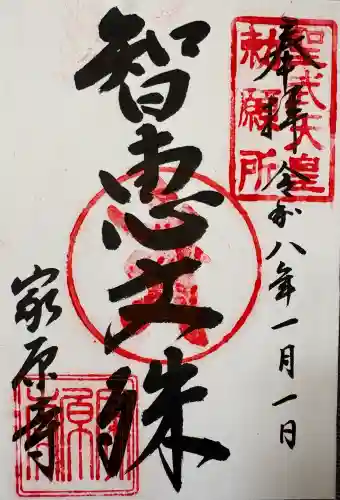 奉拝
令和八年一月一日
聖武天皇
勅願所
智恵文殊
家原寺